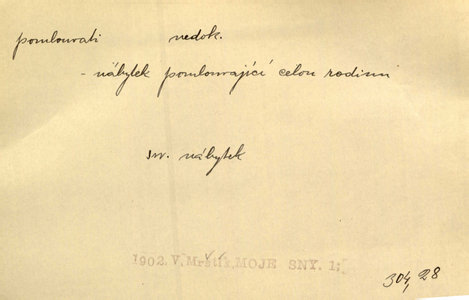 pomlouvati nedok.
- nábytek pomlouvající celou rodinu
sv. nábytek
1902. V. Mrštík, MOJE SNY. 1;
304, 28